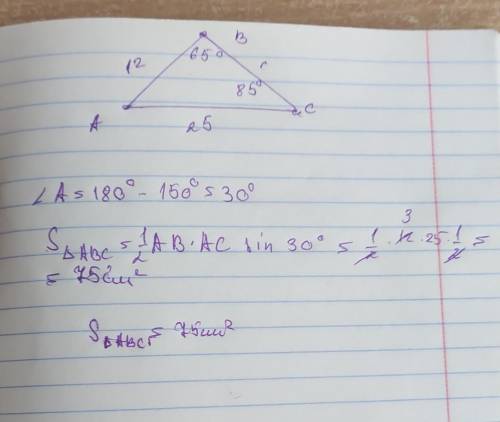 B
12 65° r
85°
A 25 C
∠A = 180° - 150° = 30°
3
S△ABC = 1/2 AB · AC sin 30° = 1/2 · 12 · 25 · 1/2 =
= 75 cm²
S△ABC = 75 cm²